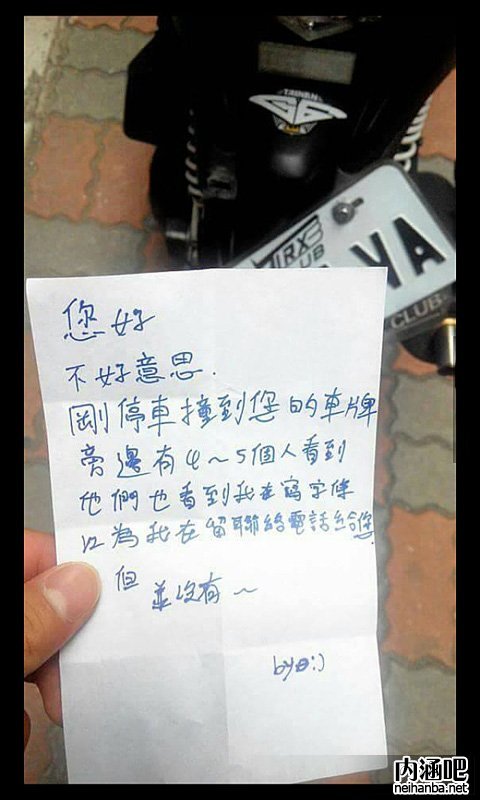 TAIWAN
G6
TTRXE
CLUB
VA
CLUB
您好
不好意思.
剛停車撞到您的車牌
旁邊有4~5個人看到
他們也看到我在寫字條
以為我在留聯絡電話給您.
但 並沒有~
by :)
内涵吧
neihanba.net